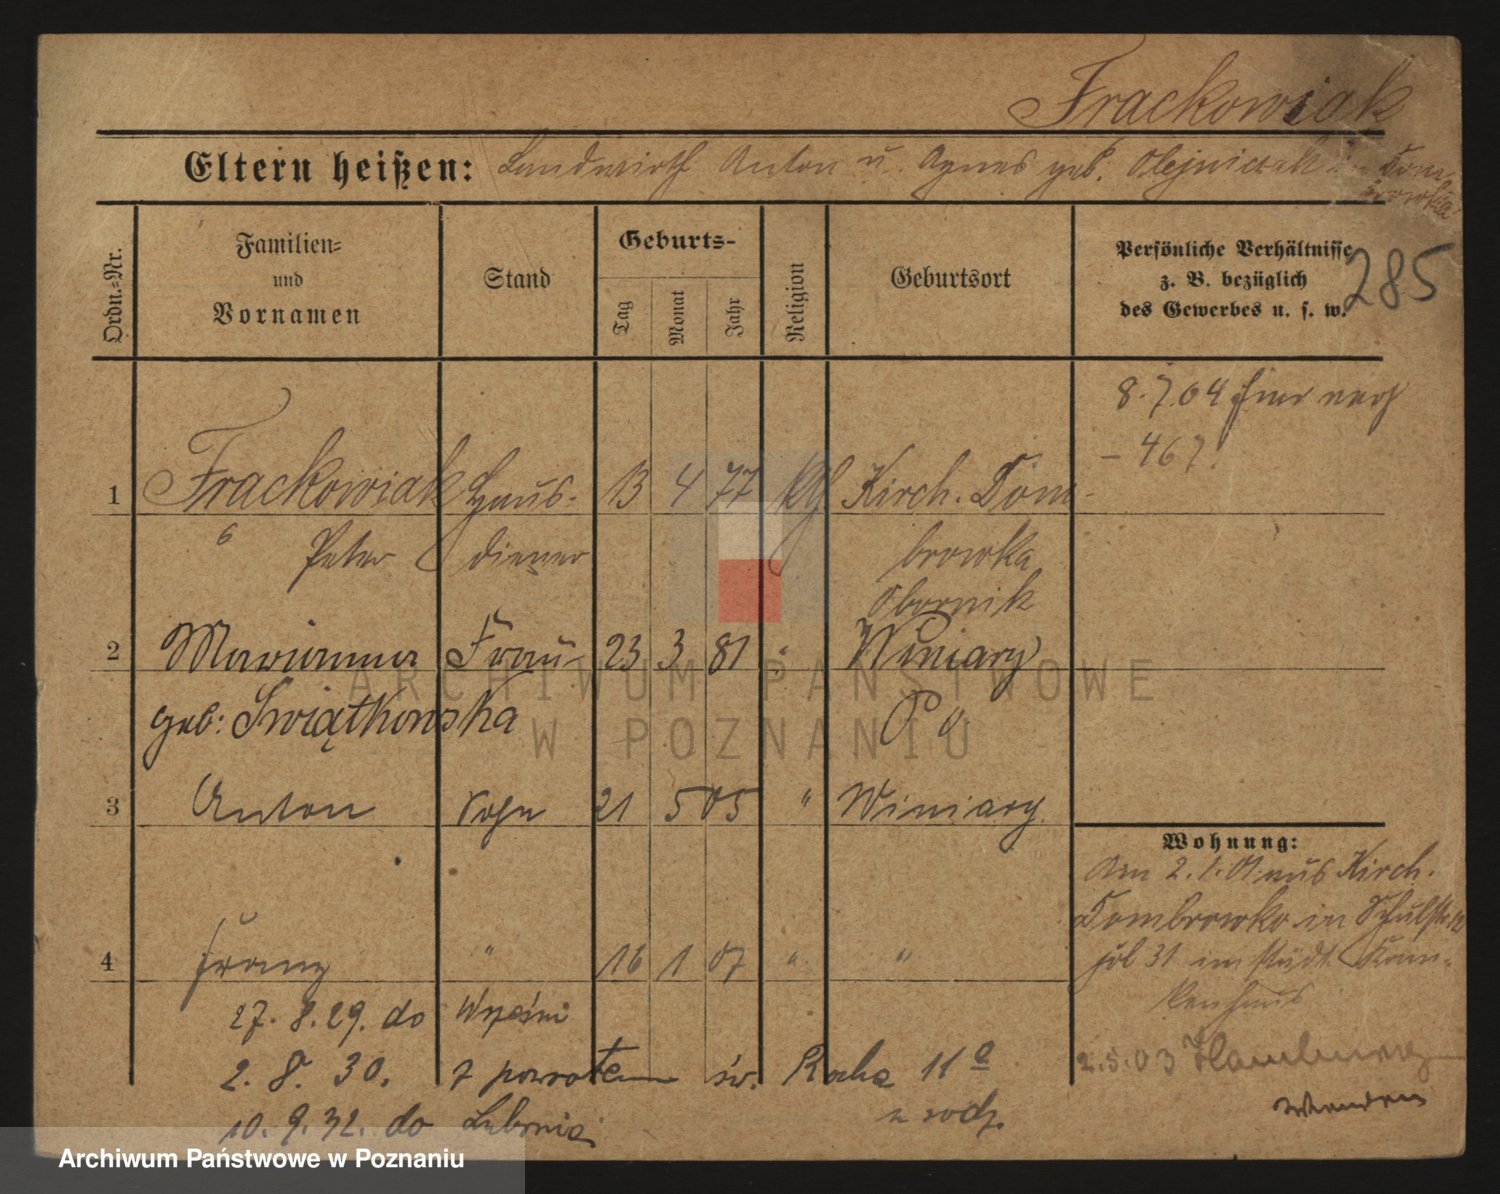 Frackowiak
Eltern heißen: Landwirth Anton u. Agnes geb. Olejniczak in Dom-
browka
Ordn.-Nr.
Familien-
und
Vornamen
Stand
Geburts-
Tag
Monat
Jahr
Religion
Geburtsort
Persönliche Verhältnisse
z. B. bezüglich
des Gewerbes u. s. w.
285
8.7.04
- 467.
1 Frackowiak Haus- 13 4 77 Kirch. Dom-
6 Peter diener browka
Obornik
2 Marianna Frau 23 3 81 " Winiary
geb: Swiątkowska Po
3 Anton Sohn 21 5 05 " Winiary.
Wohnung:
Am 2.1.01 aus Kirch.
Dombrowko in Schulstr. 12
job 31 im städt. Kran-
kenhaus
4 Franz " 16 1 07 " "
27. 8. 29. do Wrześni
2. 8. 30. z powrotem św. Rocha 11a
z rodz.
10. 9. 32. do
2.5.03
ARCHIWUM PAŃSTWOWE
W POZNANIU
Archiwum Państwowe w Poznaniu